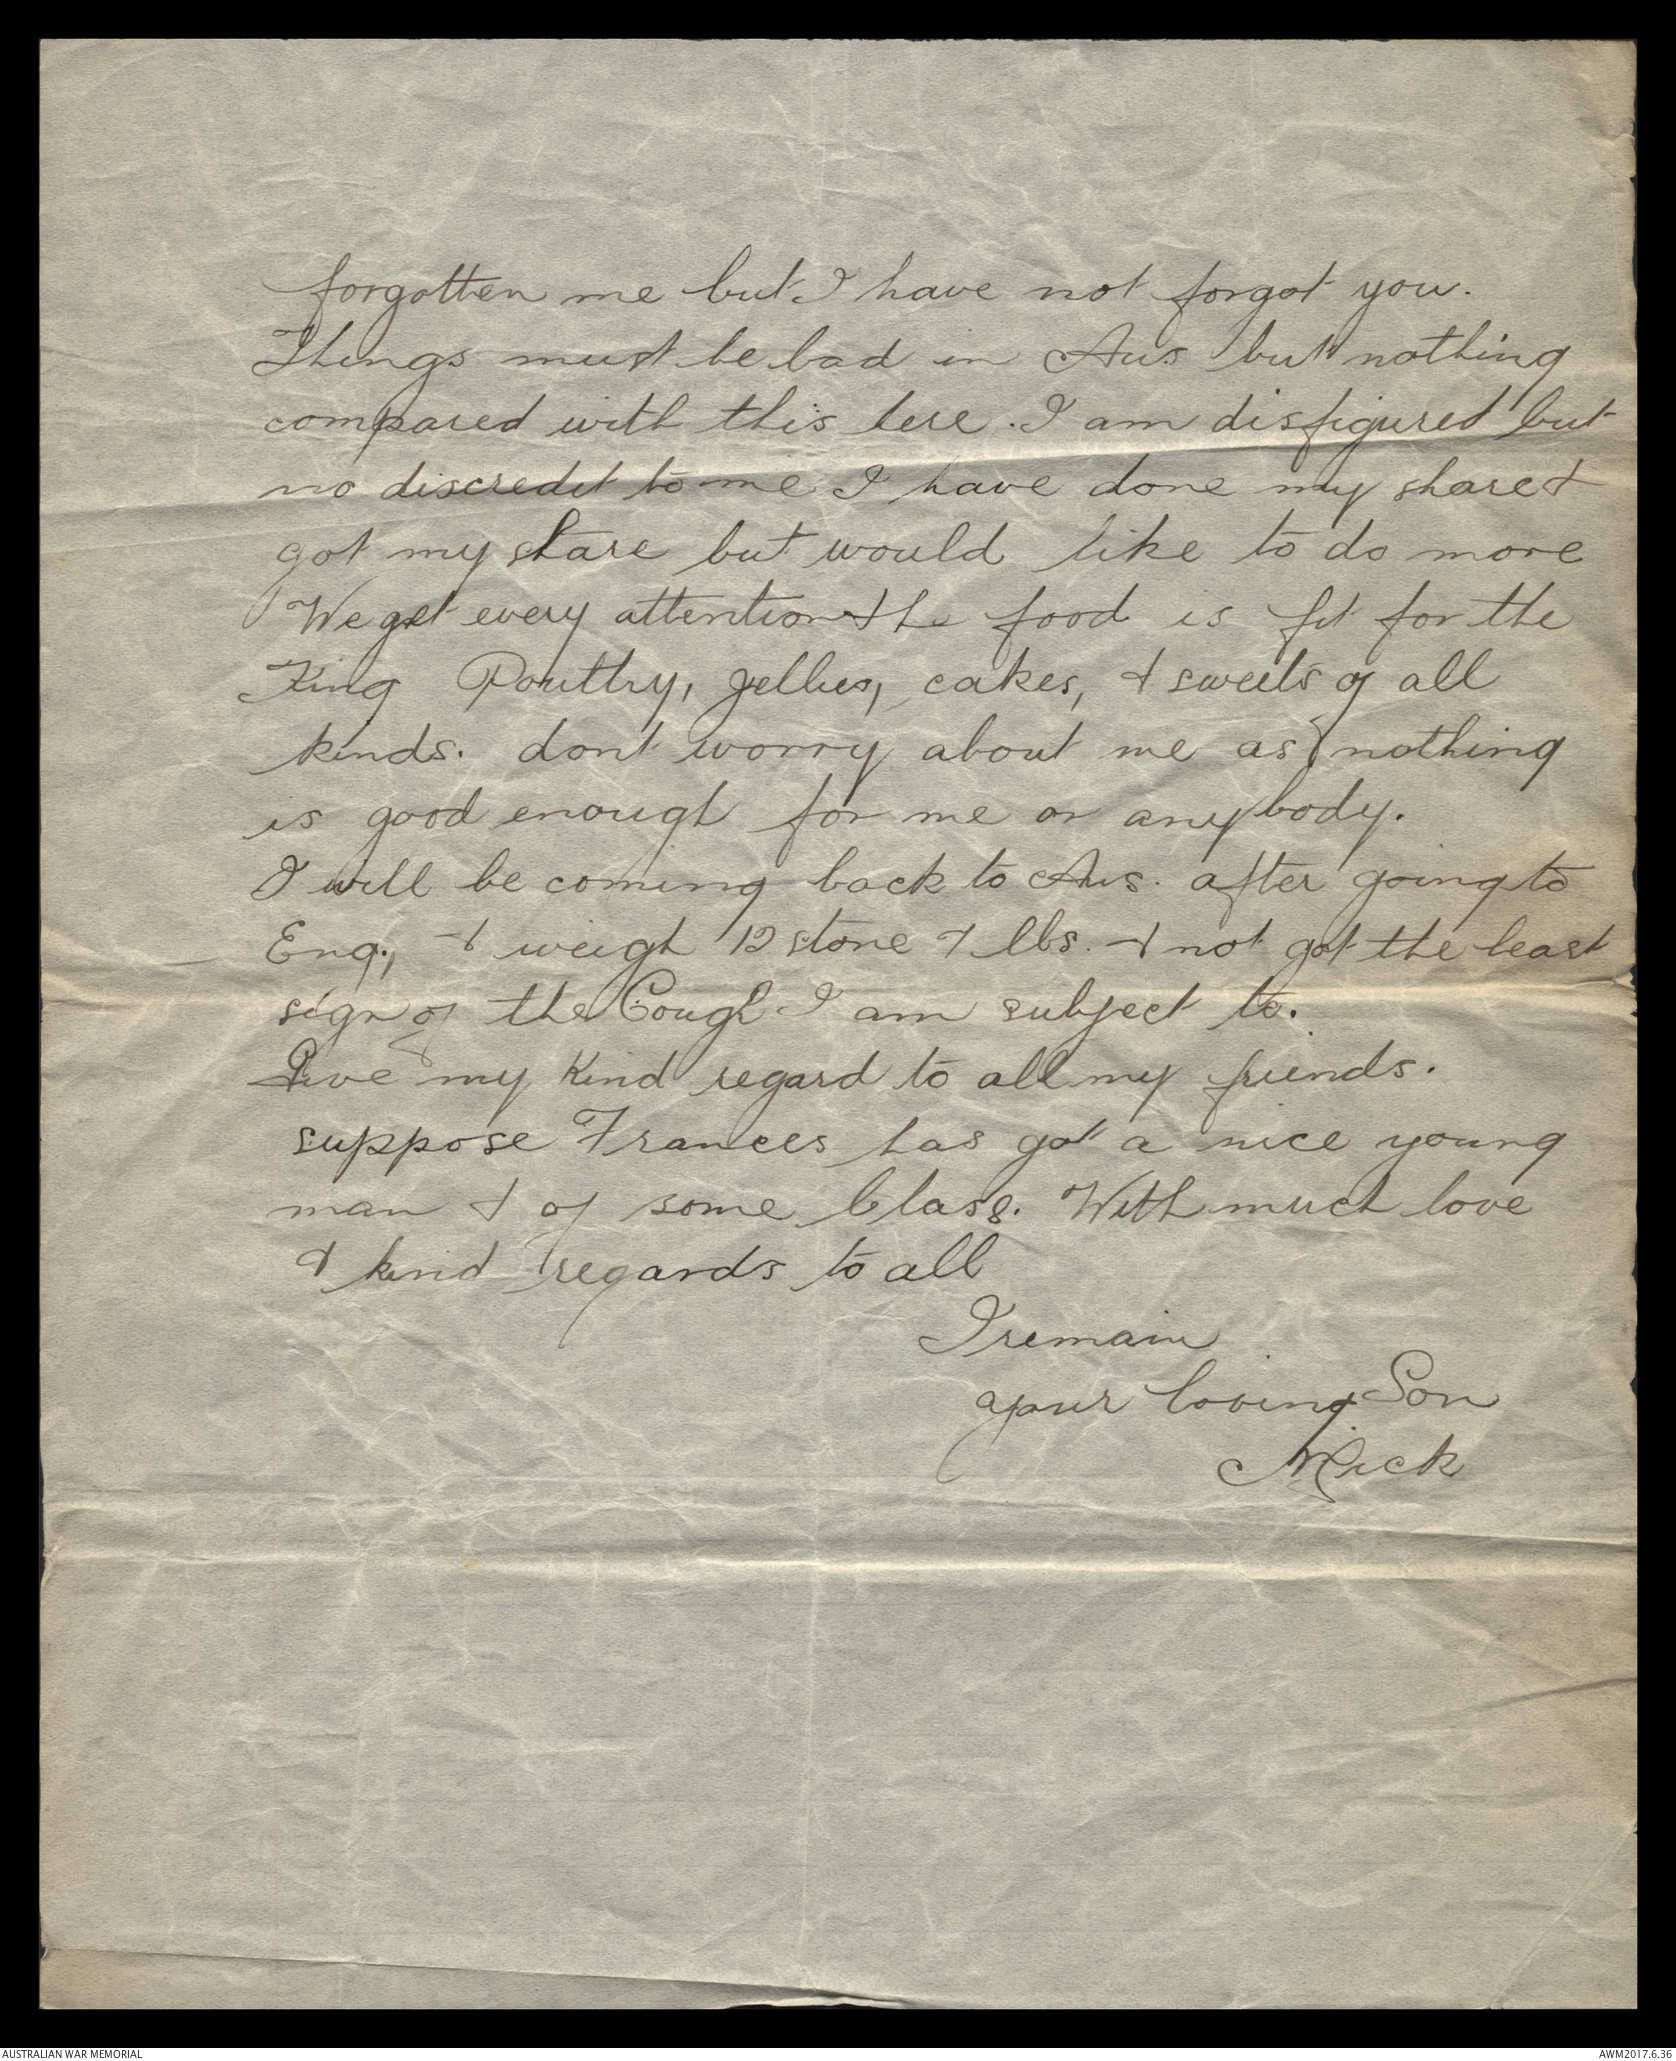 forgotten me but I have not forgot you.
Things must be bad in Aus but nothing
compared with this here. I am disfigured but
no discredit to me I have done my share &
got my share but would like to do more
We get every attention & the food is fit for the
King Poultry, Jellies, cakes, & sweets of all
kinds. dont worry about me as nothing
is good enough for me or anybody.
I will be coming back to Aus. after going to
Eng., I weigh 12 stone 7 lbs. & not got the least
sign of the Cough I am subject to.
Give my kind regard to all my friends.
suppose Frances has got a nice young
man & of some Class. With much love
& kind regards to all
I remain
your loving Son
Mick
AUSTRALIAN WAR MEMORIAL
AWM2017.6.36